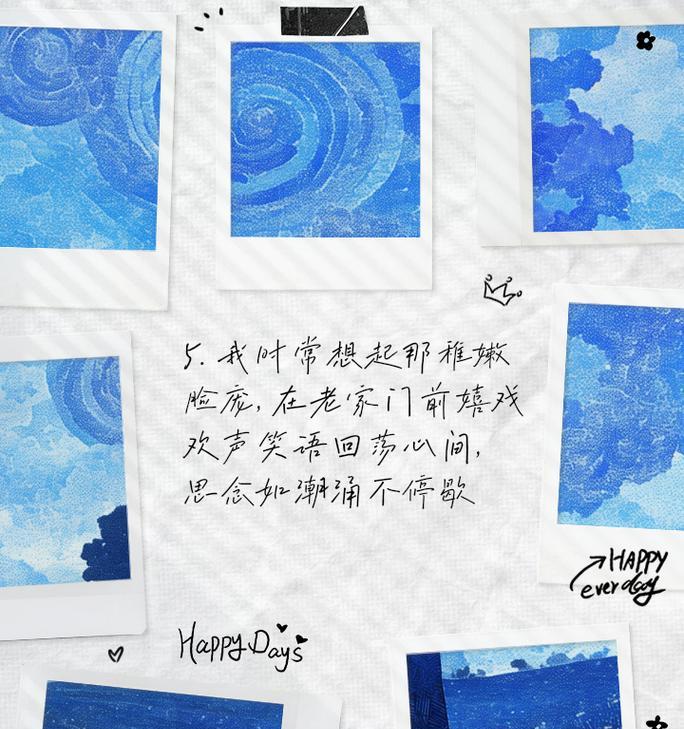 5. 我时常想起那稚嫩
脸庞，在老家门前嬉戏
欢声笑语回荡心间，
思念如潮涌不停歇
HAPPY
everday
Happy Days